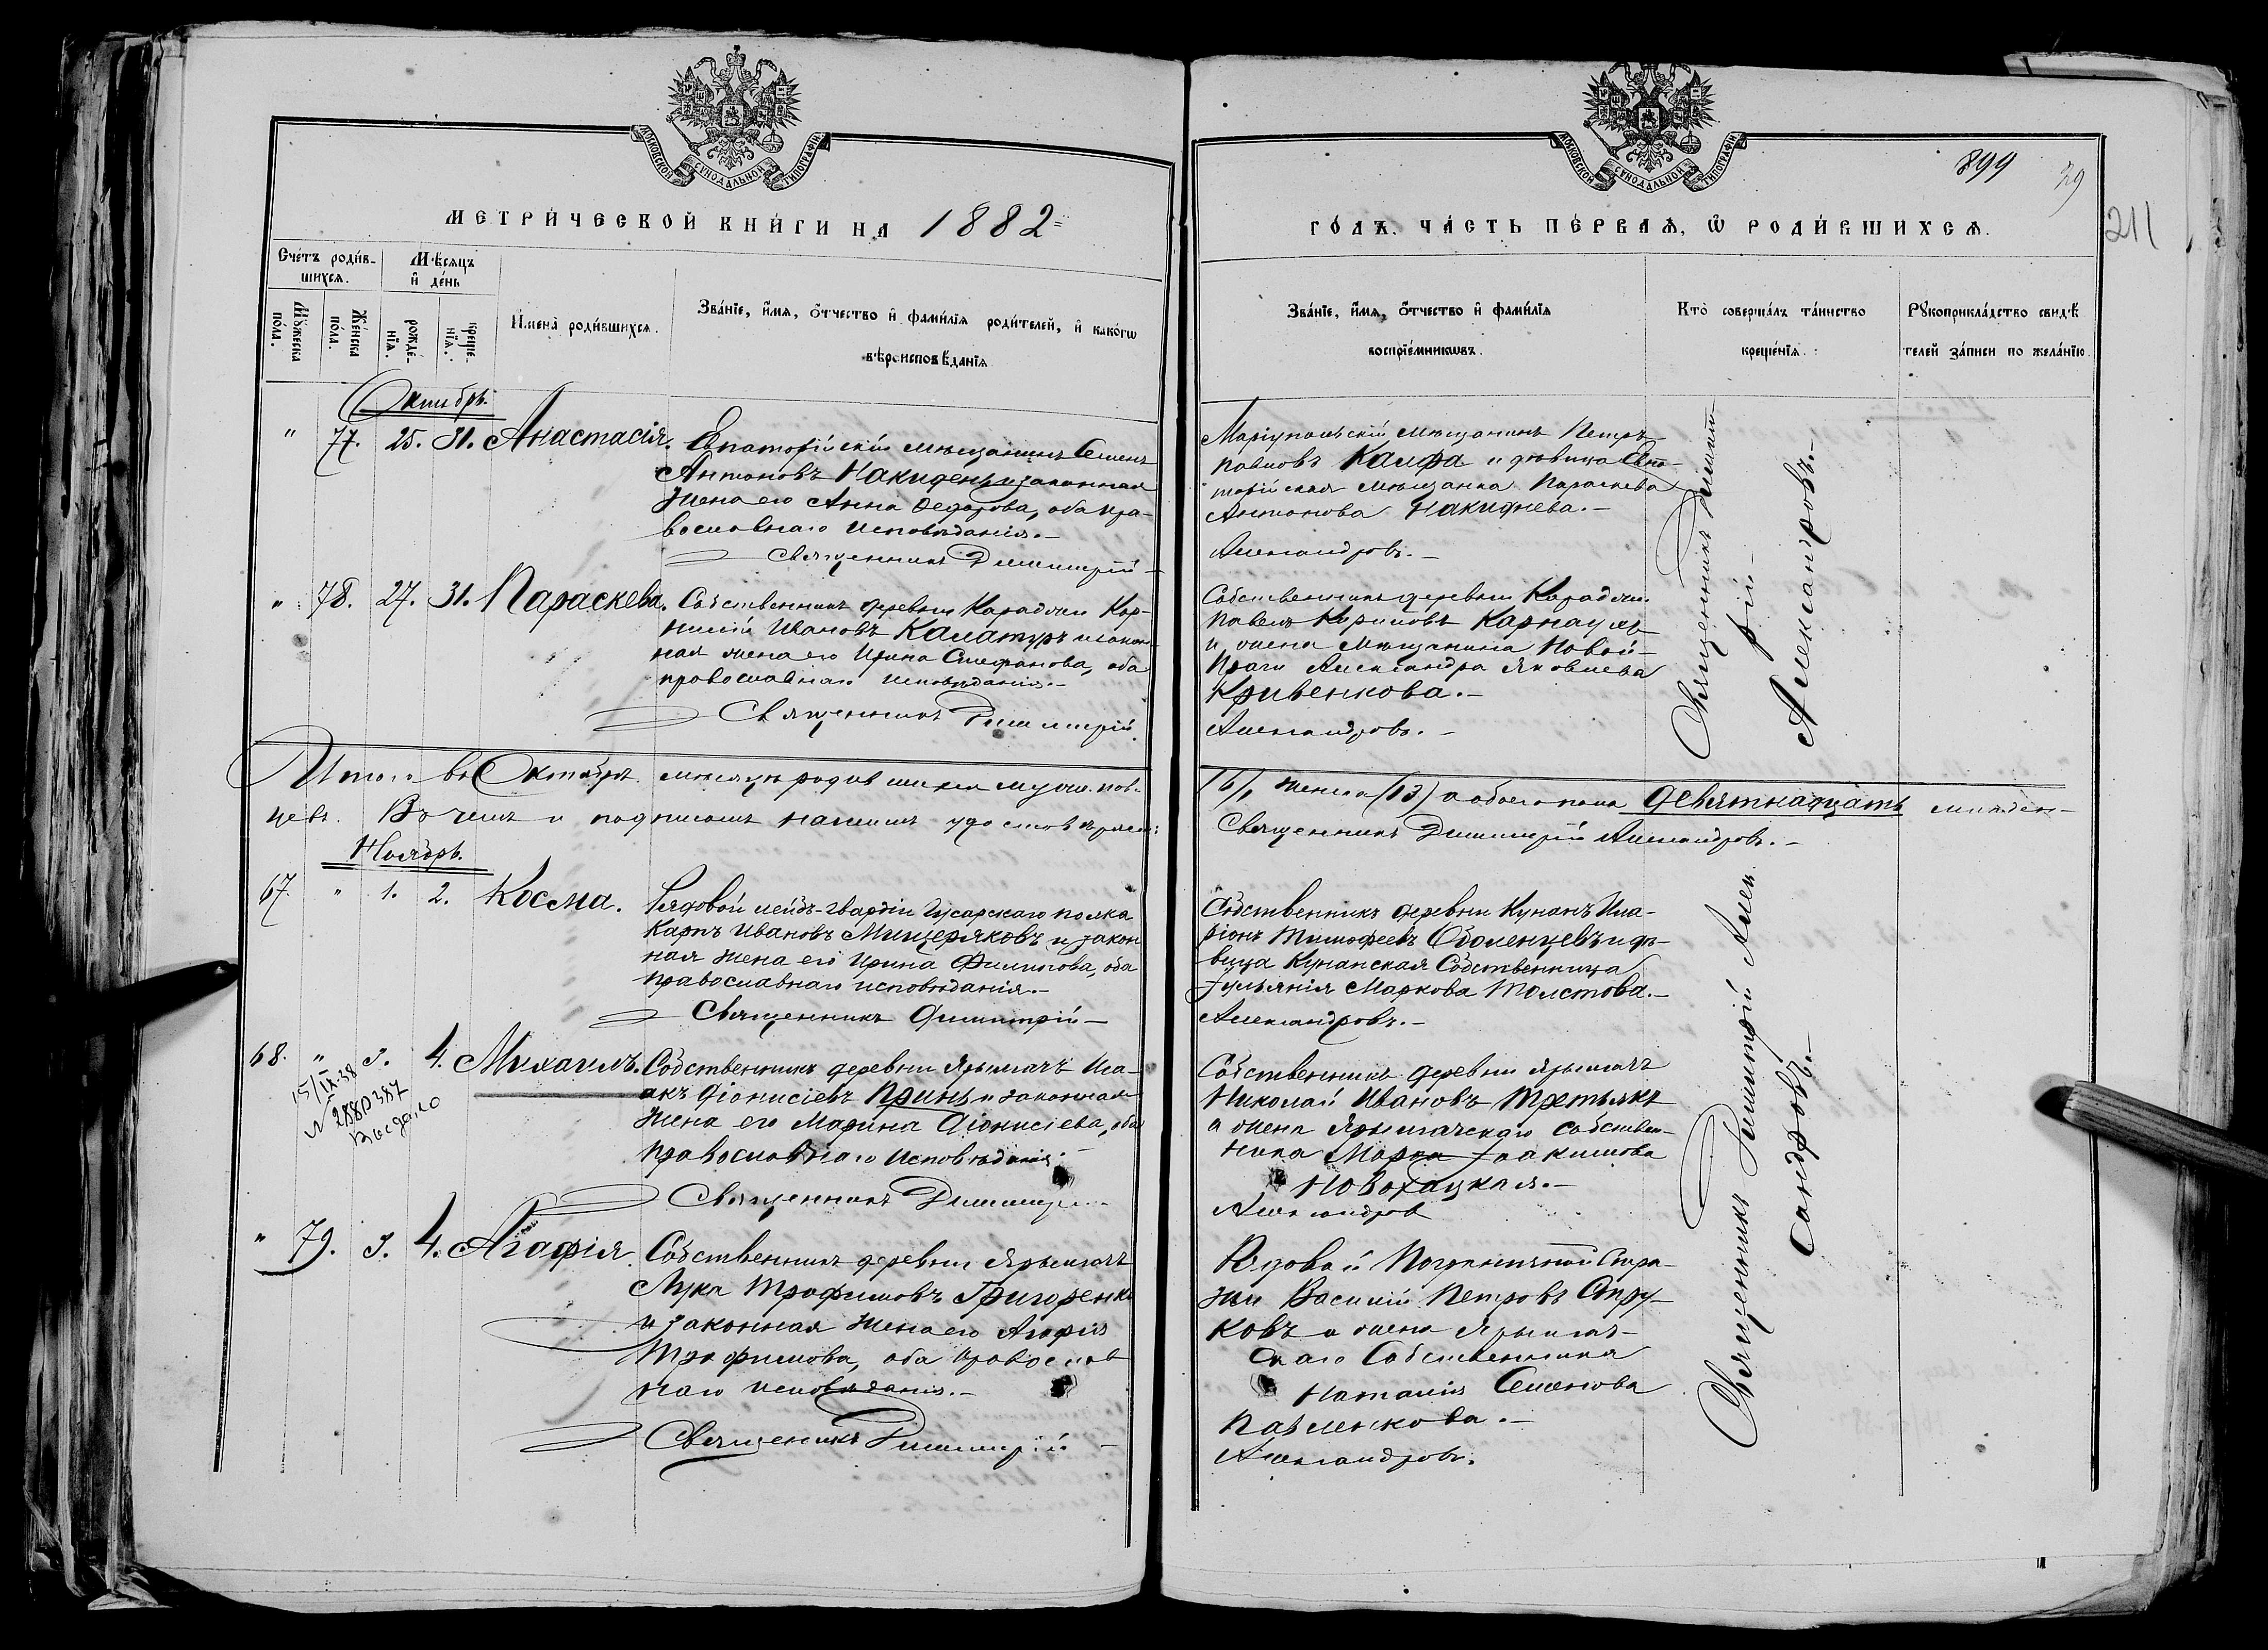 МОСКОВСКОЙ СУНОДАЛЬНОЙ ТИПОГРАФІИ
МЕТРИ́ЧЕСКОЙ КНИ́ГИ НА 1882
Сче́тъ роди́в-
шихсѧ.
Мѣ́сѧцъ
и҆ де́нь
Мꙋ́жеска
по́ла.
Же́нска
по́ла.
рожде́-
нїѧ.
креще́-
нїѧ.
И҆мена̀ роди́вшихсѧ.
Зва́нїе, и҆́мѧ, ѻ҆́тчество и҆ фами́лїѧ роди́телей, и҆ како́гѡ
вѣроисповѣ́данїѧ
Октябрь.
" 77. 25. 31. Анастасія.
Евпаторійскій мѣщанинъ Семенъ
Антоновъ Накиден и законная
жена его Анна Федорова, оба пра-
вославнаго исповѣданія.-
Священникъ Димитрій
" 78. 27. 31. Параскева.
Собственникъ деревни Караджи Кор-
нилій Ивановъ Каламуръ и закон
ная жена его Ирина Стефанова, оба
православнаго исповѣданія.-
Священникъ Димитрій
Итого въ Октябрѣ мѣсяцѣ родившихся муж. пол.
цевъ. Въ чемъ и подписомъ нашимъ удостовѣряемъ:
Ноябрь.
67. " 1. 2. Косма.
Рядовой лейбъ-гвардіи Гусарскаго полка
Карпъ Ивановъ Мищеряковъ и закон
ная жена его Ирина Филипова, оба
православнаго исповѣданія.-
Священникъ Димитрій-
68. " 3. 4. Михаилъ.
15/IX-38
№ 2880387
Выдано
Собственникъ деревни Ярылгачъ Иса-
акъ Діонисіевъ Принь и законная
жена его Марина Діонисіева, оба
православнаго исповѣданія.-
Священникъ Димитрій
" 79. 3. 4. Агафія.
Собственникъ деревни Ярылгачъ
Лука Трофимовъ Григоренко
и законная жена его Агафія
Трофимова, оба православ
наго исповѣданія.-
Священникъ Димитрій-
МОСКОВСКОЙ СУНОДАЛЬНОЙ ТИПОГРАФІИ
899
29
211
ГО́ДЪ. ЧА́СТЬ ПЕ́РВАѦ, Ѡ҆ РОДИ́ВШИХСѦ.
Зва́нїе, и҆́мѧ, ѻ҆́тчество и҆ фами́лїѧ
воспрїе́мникѡвъ.
Кто̀ соверша́лъ та́инство
креще́нїѧ.
Рꙋкоприкла́дство свидѣ́
телей за́писи по жела́нїю.
Маріупольскій мѣщанинъ Петръ
Павловъ Калфа и дѣвица Евпа-
торійская мѣщанка Параскева
Антонова Накиднева.-
Александровъ.-
Собственникъ деревни Караджи
Павелъ Кириловъ Карнаухъ
и жена мѣщанина Новой-
Праги Александра Яковлева
Кривенкова.-
Александровъ.-
Священникъ Димит-
рій
Александровъ.-
(6) женск (13) а обоего пола девятнадцать младен-
Священникъ Димитрій Александровъ.-
Собственникъ деревни Кунанъ Ила-
ріонъ Тимофеевъ Оболенцевъ и дѣ-
вица Кунанская Собственница
Іуліянія Маркова Толстова.-
Александровъ.-
Собственникъ деревни Ярылгачъ
Николай Ивановъ Третьякъ
и жена Ярылгачскаго собствен-
ника Марѳа Іоакимова
Новохацкая.-
Александров
Рядовой Пограничной Стра-
жи Василій Петровъ Стру-
ковъ и жена Ярылгач-
скаго Собственника
Наталія Семенова
Павленкова.-
Александровъ.
Священникъ Димитрій Алек-
сандровъ.-